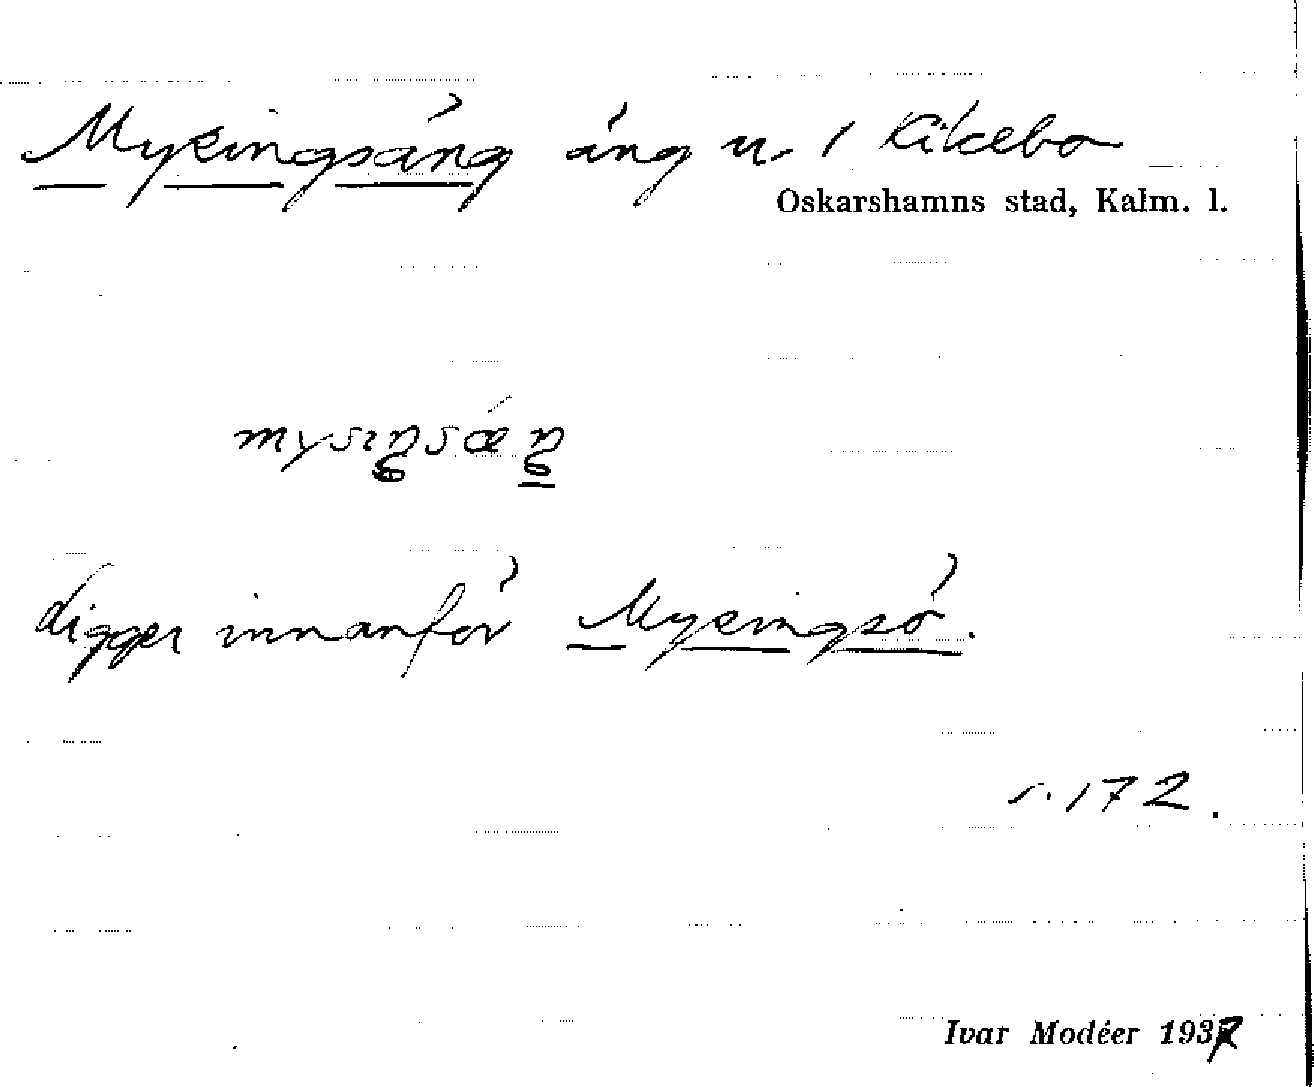 Mysingsäng äng u. 1 Kikebo
Oskarshamns stad, Kalm. l.
mysiŋsæ´ŋ
Ligger innanför Mysingsö.
s. 172.
Ivar Modéer 1937